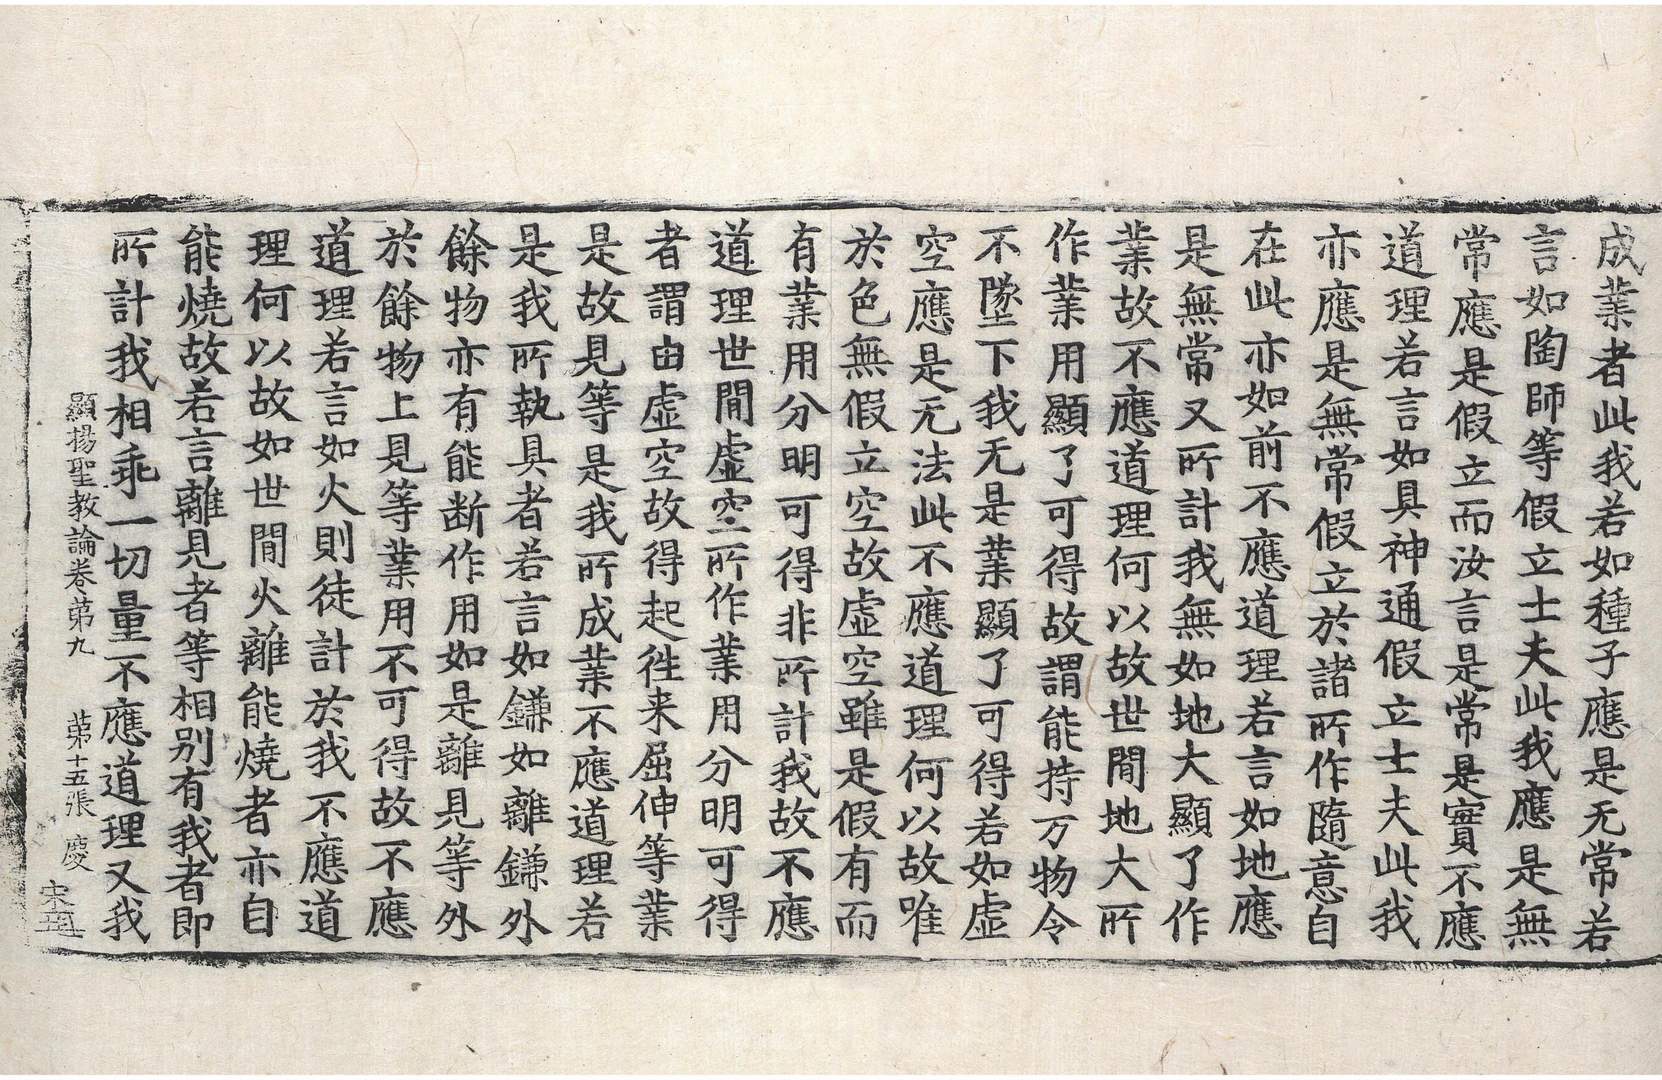 成業者此我若如種子應是无常若
言如陶師等假立士夫此我應是無
常應是假立而汝言是常是實不應
道理若言如具神通假立士夫此我
亦應是無常假立於諸所作隨意自
在此亦如前不應道理若言如地應
是無常又所計我無如地大顯了作
業故不應道理何以故世間地大所
作業用顯了可得故謂能持万物令
不墜下我无是業顯了可得若如虛
空應是无法此不應道理何以故唯
於色無假立空故虛空雖是假有而
有業用分明可得非所計我故不應
道理世間虛空所作業用分明可得
者謂由虛空故得起往来屈伸等業
是故見等是我所成業不應道理若
是我所執具者若言如鎌如離鎌外
餘物亦有能断作用如是離見等外
於餘物上見等業用不可得故不應
道理若言如火則徒計於我不應道
理何以故如世間火離能燒者亦自
能燒故若言離見者等相別有我者即
所計我相乖一切量不應道理又我
顯揚聖教論卷苐九 苐十五張 慶
宋五